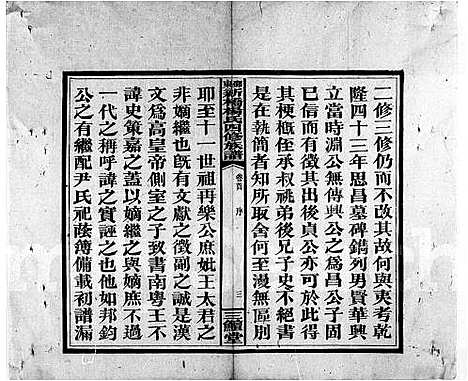 二修三修仍而不改其故何與夷考乾
隆四十三年思昌墓碑鐫列男賢華興
立當時淵公無傳興公之為昌公子固
已信而有徵其出後貞公亦可於此得
其梗概侄承叔祧弟後兄子史不絕書
是在執簡者知所取舍何至漫無區別
新橋楊氏四修族譜
卷首
序
三
三鱣堂
耶至十一世祖再樂公庶妣王太君之
非嫡繼也旣有文獻之徵副之誠是漢
文為高皇帝側室之子致書南粵王不
諱史策嘉之蓋以嫡繼之與嫡庶不過
一代之稱呼諱之實誣之也他如邦鈞
公之有繼配尹氏祀蔭簿備載初譜漏